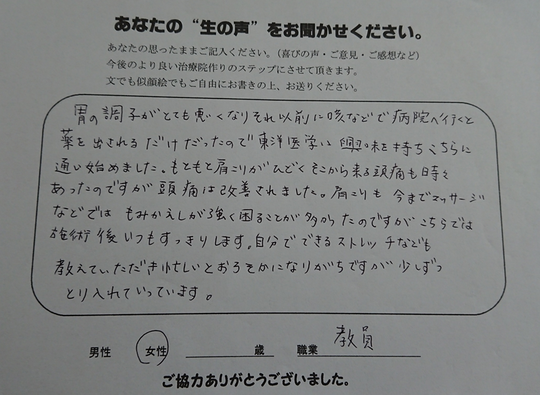 あなたの“生の声”をお聞かせください。
あなたの思ったままご記入ください。（喜びの声・ご意見・ご感想など）
今後のより良い治療院作りのステップにさせて頂きます。
文でも似顔絵でもご自由にお書きの上、お送りください。
胃の調子がとても悪くなりそれ以前に咳などで病院へ行くと
薬を出されるだけだったので東洋医学に興味を持ちこちらに
通い始めました。もともと肩こりがひどくそこから来る頭痛も時々
あったのですが頭痛は改善されました。肩こりも今までマッサージ
などではもみかえしが強く困ることが多かったのですがこちらでは
施術後いつもすっきりします。自分でできるストレッチなども
教えていただき忙しいとおろそかになりがちですが少しずつ
とり入れていっています。
男性 女性 歳 職業 教員
ご協力ありがとうございました。